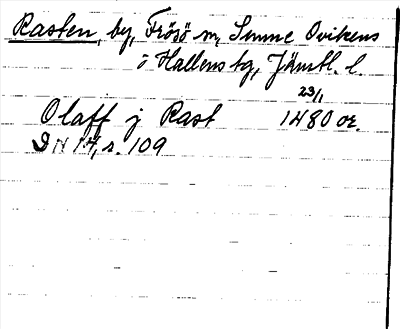 Rasten, by, Frösö m, Sunne Ovikens
o Hallens tg, Jämtl. l.
23/1
Olaff j Rast 1480 or.
DN 14, s. 109